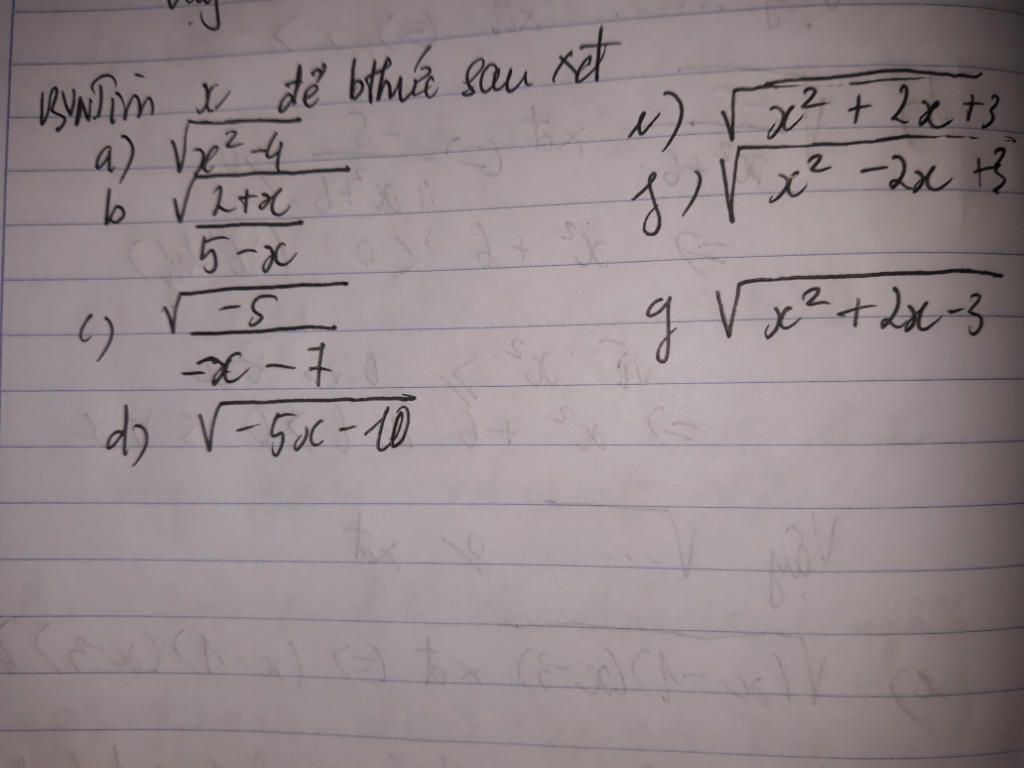 BVN Tìm x để bthức sau xđ
a) √(x² - 4)
b √((2+x)/(5-x))
c) √((-5)/(-x-7))
d) √(-5x-10)
e) √(x² + 2x + 3)
f) √(x² - 2x + 3)
g √(x² + 2x - 3)